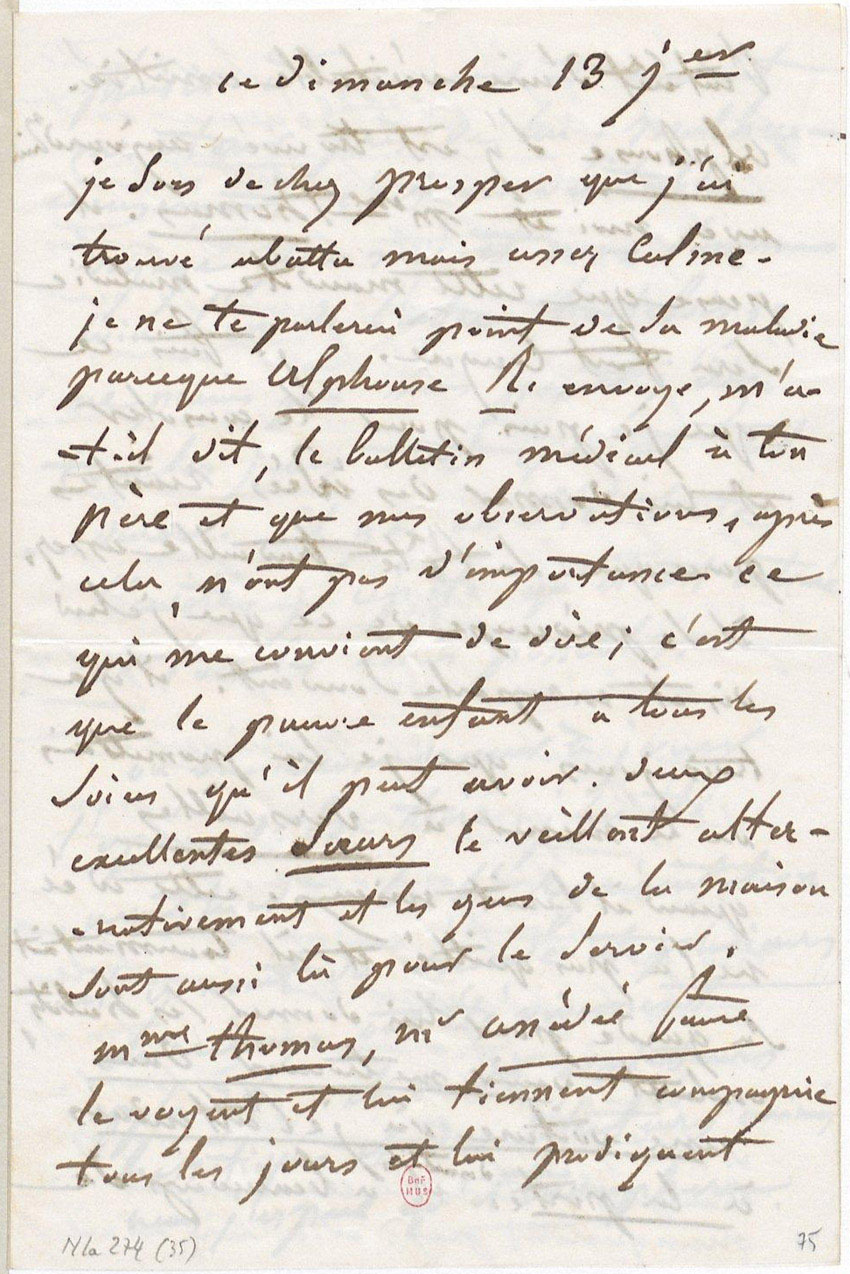 ce dimanche 13 jer
je sors de chez prosper que j'ai
trouvé abattu mais assez calme.
je ne te parlerai point de la maladie
parceque Alphonse R. envoye, m'a-
t-il dit, le bulletin médical à ton
père et que mes observations, après
cela, n'ont pas d'importance. ce
qui me convient de dire; c'est
que le pauvre enfant a tous les
soins qu'il peut avoir. deux
excellentes Sœurs le veillent alter-
nativement et les gens de la maison
sont aussi là pour le servir.
mme thomas, mr amédée
le voyent et lui tiennent compagnie
tous les jours et lui prodiguent
BnF
MUS
Nla 274 (35)
75